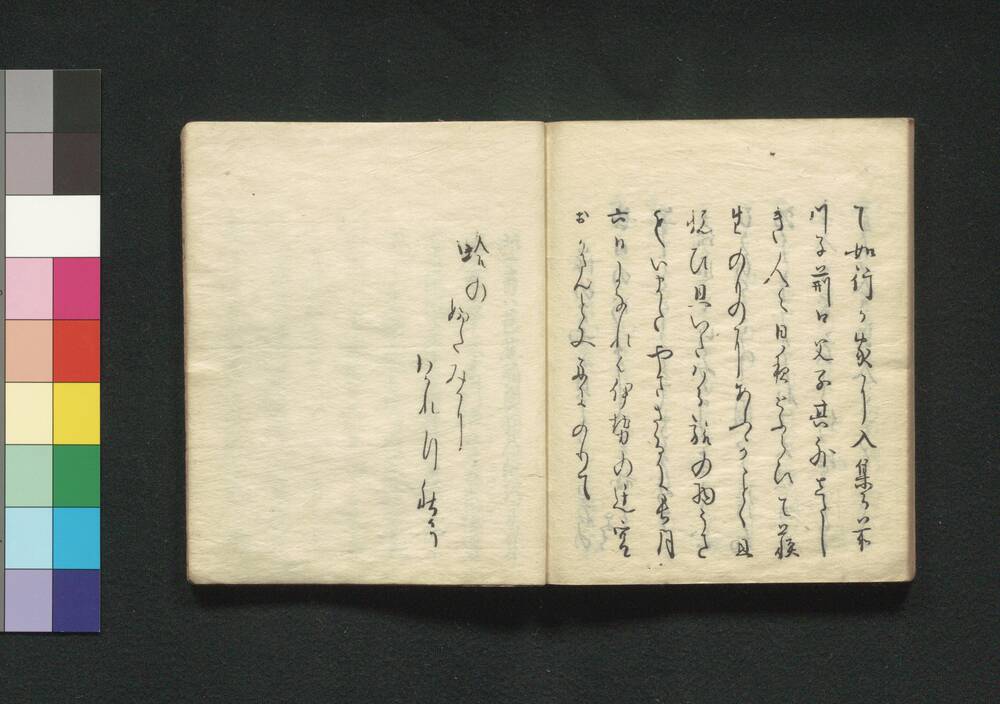 て如行か家に入集る前
川子荊口父子其外したし
き人々日夜とふらひて蘇
生のものにあふかことく且
悦ひ且いたはる旅の物うさ
もいまたやまさるに長月
六日になれは伊勢の迁宮
おかまんと又舟にのりて
蛤のふたみに
わかれ行秋そ